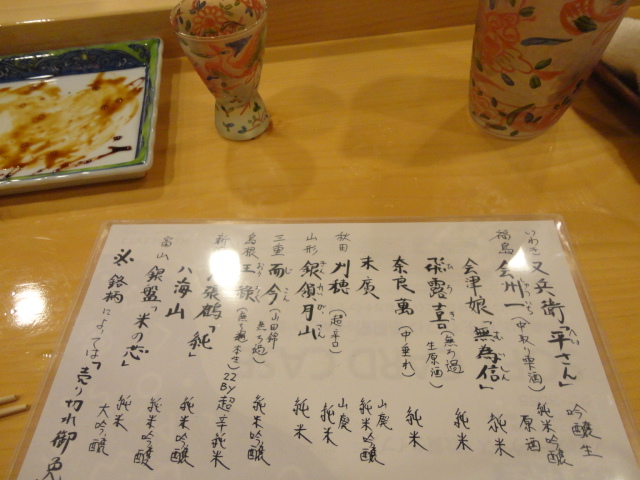 いわき 又兵衛「平さん」 吟醸生
福島 会州一 (中取り 雫酒) 純米吟醸 原酒
会津娘 無為信」 純米
飛露喜 (無ろ過 生原酒) 純米
奈良萬 (中垂れ) 純米
末廣 山廃 純米吟醸
秋田 刈穂 (超辛口) 山廃 純米
山形 銀嶺月山 純米
三重 而今 (山田錦 無ろ過) 純米吟醸
島根 王祿 22BY 超辛純米
張鶴「純」 純米吟醸
八海山 純米吟醸
富山 銀盤「米の芯」 純米大吟醸
※ 銘柄によっては「売り切れ御免